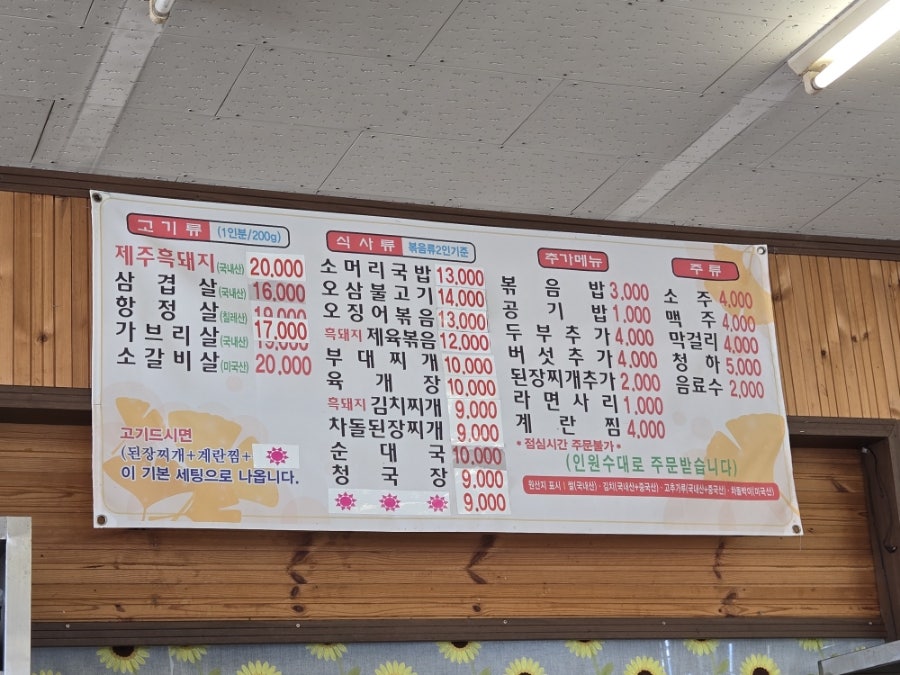 고기류 (1인분/200g)
제주흑돼지(국내산) 20,000
삼겹살(국내산) 16,000
항정살(칠레산) 19,000
가브리살(국내산) 17,000
소갈비살(미국산) 20,000
고기드시면
(된장찌개+계란찜+
이 기본 세팅으로 나옵니다.
식사류 볶음류2인기준
소머리국밥 13,000
오삼불고기 14,000
오징어볶음 13,000
흑돼지 제육볶음 12,000
부대찌개 10,000
육개장 10,000
흑돼지 김치찌개 9,000
차돌된장찌개 9,000
순대국 10,000
청국장 9,000
9,000
추가메뉴
볶음밥 3,000
공기밥 1,000
두부추가 4,000
버섯추가 4,000
된장찌개추가 2,000
라면사리 1,000
계란찜 4,000
*점심시간 주문불가*
(인원수대로 주문받습니다)
원산지 표시 | 쌀(국내산) · 김치(국내산+중국산) · 고추가루(국내산+중국산) · 차돌박이(미국산)
주류
소주 4,000
맥주 4,000
막걸리 4,000
청하 5,000
음료수 2,000